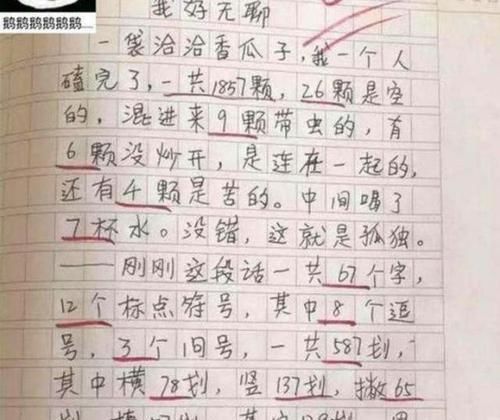 鹅鹅鹅鹅鹅鹅....
我好无聊
一袋洽洽香瓜子,我一个人
磕完了,一共1857颗,26颗是空
的,混进来9颗带虫的,有
6颗没炒开,是连在一起的,
还有4颗是苦的。中间喝了
7杯水。没错,这就是孤独。
——刚刚这段话一共67个字,
12个标点符号,其中8个逗
号,3个句号,一共587划,
其中横78划,竖137划,撇65